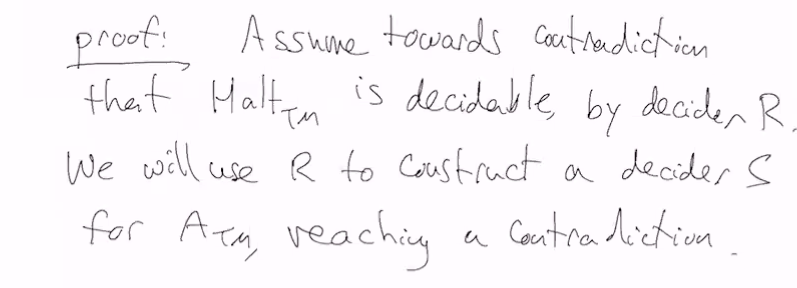 proof: Assume towards contradiction
that Halt_TM is decidable, by decider R.
We will use R to construct a decider S
for A_TM, reaching a contradiction.